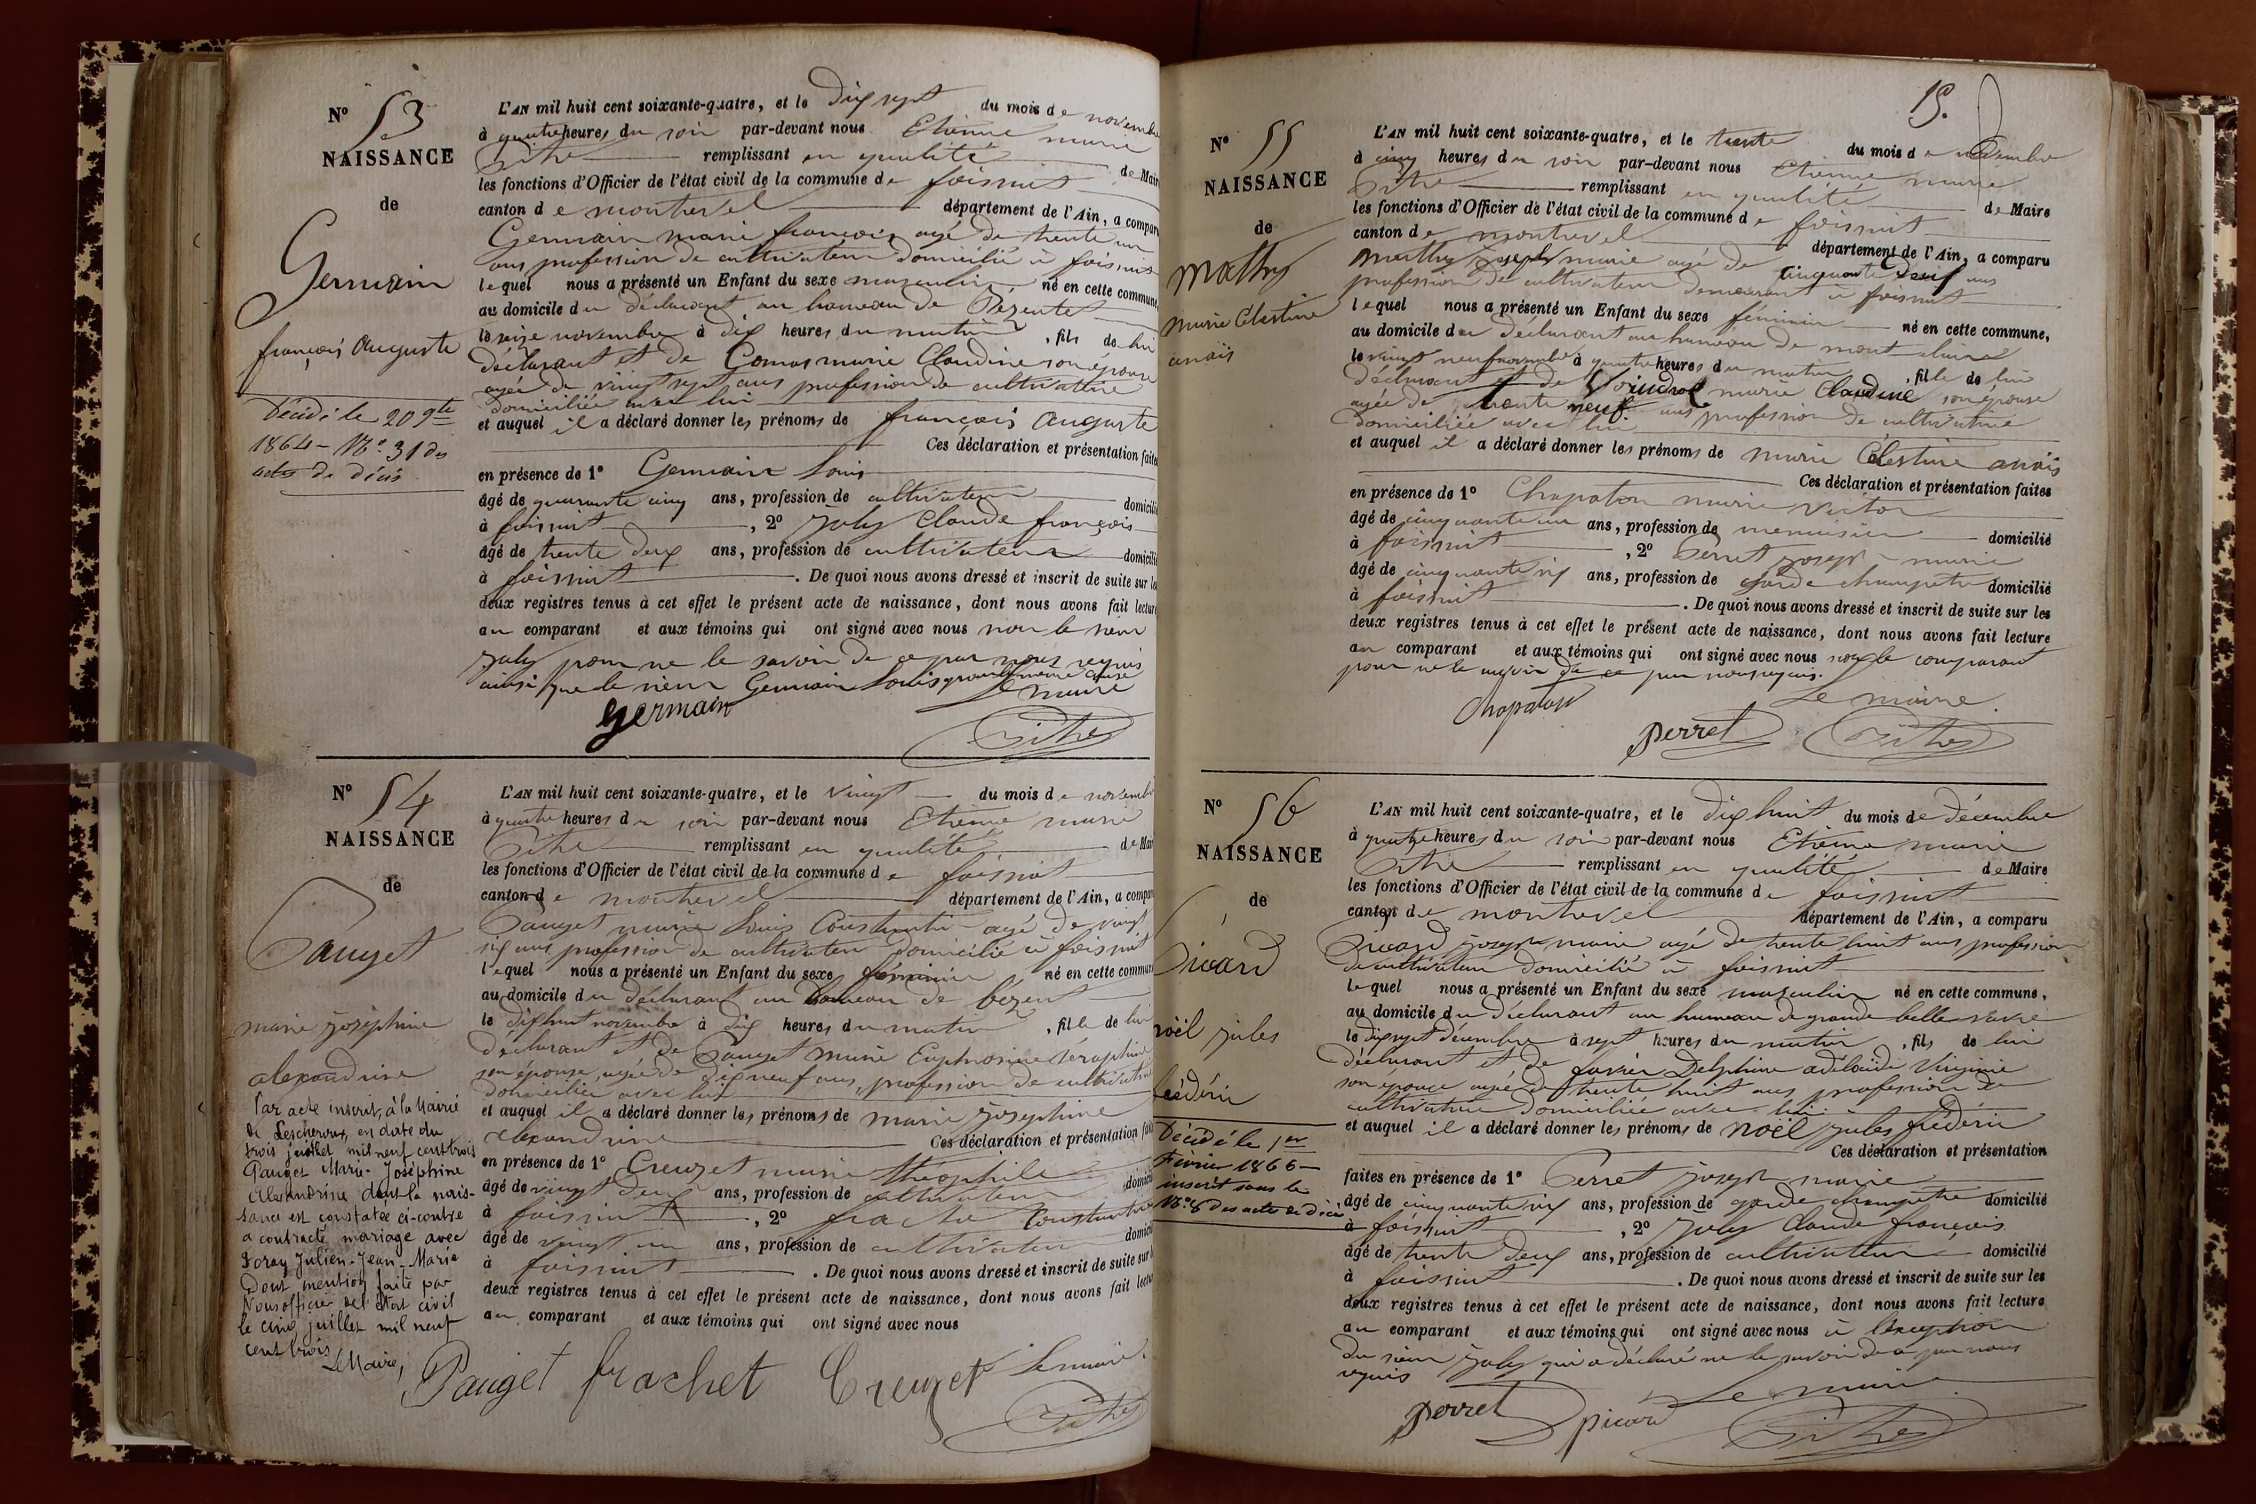 N° 53
NAISSANCE
de
Germain
françois auguste
Décédé le 20 9bre
1864 - N° 31 des
actes de décès
L'AN mil huit cent soixante-quatre, et le dix sept du mois de novembre
à quatre heures du soir par-devant nous Etienne marie
Pithe remplissant en qualité de Maire
les fonctions d'Officier de l'état civil de la commune de foissiat
canton de montrevel département de l'Ain, a comparu
Germain marie françois agé de trente un
ans profession de cultivateur domicilié à foissiat
lequel nous a présenté un Enfant du sexe masculin né en cette commune
au domicile du déclarant au hameau de Bézentet
le seize novembre à dix heures du matin, fils de lui
déclarant et de Comas marie Claudine son épouse
agée de vingt sept ans profession de cultivatrice
domiciliée avec lui
et auquel il a déclaré donner les prénoms de françois auguste
Ces déclaration et présentation faites
en présence de 1° Germain Louis
âgé de quarante cinq ans, profession de cultivateur domicilié
à foissiat, 2° Joly Claude françois
âgé de trente deux ans, profession de cultivateur domicilié
à foissiat. De quoi nous avons dressé et inscrit de suite sur les
deux registres tenus à cet effet le présent acte de naissance, dont nous avons fait lecture
au comparant et aux témoins qui ont signé avec nous non le sieur
Joly pour ne le savoir de ce par nous requis
ainsi que le sieur Germain Louis pour la même cause
Le maire
germain
Pithe
N° 54
NAISSANCE
de
Pauget
marie joséphine
alexandrine
Par acte inscrit à la Mairie
de Lescheroux, en date du
trois juillet mil neuf cent trois
Pauget Marie-Joséphine
Alexandrine dont la nais-
sance est constatée ci-contre
a contracté mariage avec
Foray Julien-Jean-Marie
Dont mention faite par
Nous officier de l'état civil
le cinq juillet mil neuf
cent trois
Le Maire,
L'AN mil huit cent soixante-quatre, et le vingt du mois de novembre
à quatre heures du soir par-devant nous Etienne marie
Pithe remplissant en qualité de Maire
les fonctions d'Officier de l'état civil de la commune de foissiat
canton de montrevel département de l'Ain, a comparu
Pauget marie Louis Constantin agé de vingt
six ans profession de cultivateur domicilié à foissiat
lequel nous a présenté un Enfant du sexe féminin né en cette commune
au domicile du déclarant au hameau de bézent
le dix huit novembre à dix heures du matin, fille de lui
déclarant et de Pauget marie Euphrosine Séraphine
son épouse, agée de dix neuf ans, profession de cultivatrice
domiciliée avec lui
et auquel il a déclaré donner les prénoms de marie josephine
alexandrine Ces déclaration et présentation faites
en présence de 1° Creuzet marie théophile
âgé de vingt deux ans, profession de cultivateur domicilié
à foissiat, 2° frachet Constantin
âgé de vingt un ans, profession de cultivateur domicilié
à foissiat. De quoi nous avons dressé et inscrit de suite sur les
deux registres tenus à cet effet le présent acte de naissance, dont nous avons fait lecture
au comparant et aux témoins qui ont signé avec nous
Pauget frachet Creuzet Le maire
Pithe
19.
N° 55
NAISSANCE
de
mathy
marie Célestine
anaïs
L'AN mil huit cent soixante-quatre, et le trente du mois de novembre
à cinq heures du soir par-devant nous Etienne marie
Pithe remplissant en qualité de Maire
les fonctions d'Officier de l'état civil de la commune de foissiat
canton de montrevel département de l'Ain, a comparu
mathy joseph marie agé de cinquante deux ans
profession de cultivateur demeurant à foissiat
lequel nous a présenté un Enfant du sexe féminin né en cette commune,
au domicile du déclarant au hameau de mont
le vingt neuf novembre à quatre heures du matin, fille de lui
déclarant et de marie Claudine son épouse
agée de trente neuf ans profession de cultivatrice
domiciliée avec lui
et auquel il a déclaré donner les prénoms de marie Célestine anaïs
Ces déclaration et présentation faites
en présence de 1° Chapaton marie victor
âgé de cinquante un ans, profession de menuisier domicilié
à foissiat, 2° Perret joseph marie
âgé de cinquante six ans, profession de garde champêtre domicilié
à foissiat. De quoi nous avons dressé et inscrit de suite sur les
deux registres tenus à cet effet le présent acte de naissance, dont nous avons fait lecture
au comparant et aux témoins qui ont signé avec nous non le comparant
pour ne le savoir de ce par nous requis.
Chapaton Le maire.
perret Pithe
N° 56
NAISSANCE
de
Picard
noël jules
frédéric
Décédé le 1er
Février 1866
inscrit sous le
N° 8 des actes de décès
L'AN mil huit cent soixante-quatre, et le dix huit du mois de décembre
à quatre heures du soir par-devant nous Etienne marie
Pithe remplissant en qualité de Maire
les fonctions d'Officier de l'état civil de la commune de foissiat
canton de montrevel département de l'Ain, a comparu
Picard joseph marie agé de trente huit ans profession
de cultivateur domicilié à foissiat
lequel nous a présenté un Enfant du sexe masculin né en cette commune,
au domicile du déclarant au hameau de grande belle
le dix sept décembre à sept heures du matin, fils de lui
déclarant et de favier Delphine adélaïde Virginie
son épouse agée de trente huit ans profession de
cultivatrice domiciliée avec lui
et auquel il a déclaré donner les prénoms de noël jules frédéric
Ces déclaration et présentation
faites en présence de 1° Perret joseph marie
âgé de cinquante six ans, profession de garde champêtre domicilié
à foissiat, 2° Joly Claude françois
âgé de trente deux ans, profession de cultivateur domicilié
à foissiat. De quoi nous avons dressé et inscrit de suite sur les
deux registres tenus à cet effet le présent acte de naissance, dont nous avons fait lecture
au comparant et aux témoins qui ont signé avec nous à l'exception
du sieur Joly qui a déclaré ne le savoir de ce par nous
requis
Le maire
perret picard Pithe